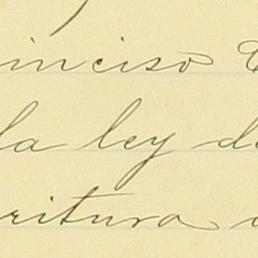 inciso
la ley de
ritura